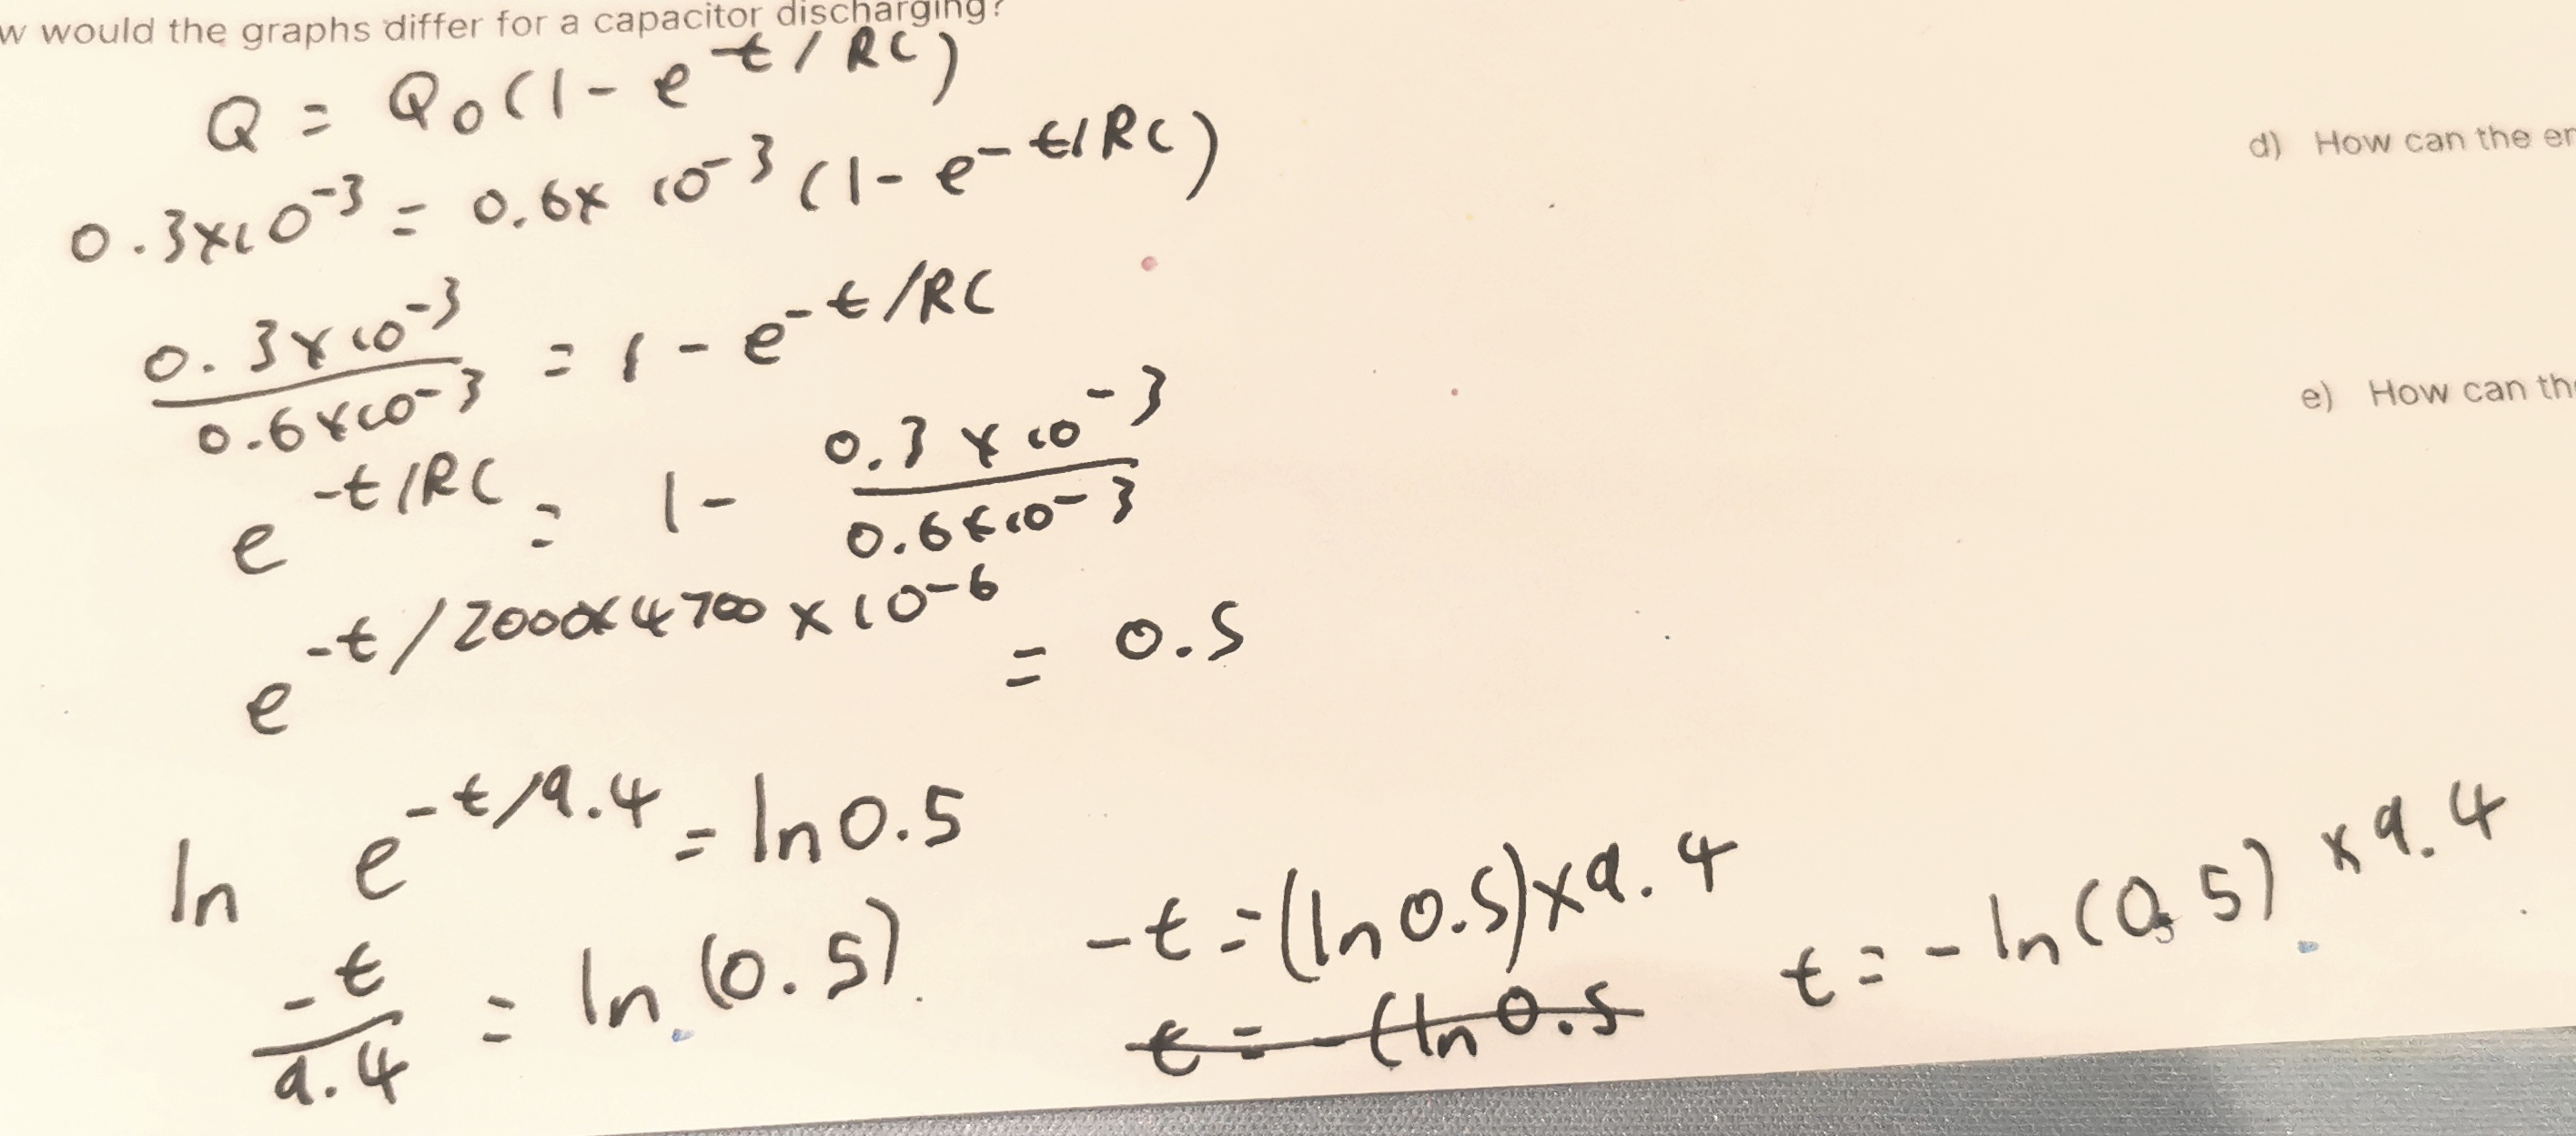 w would the graphs differ for a capacitor discharging?
Q = Q₀(1 - e^-t/RC)
0.3×10^-3 = 0.6× 10^-3 (1 - e^-t/RC)
0.3×10^-3 / 0.6×10^-3 = 1 - e^-t/RC
e^-t/RC = 1 - 0.3 × 10^-3 / 0.6×10^-3
e^-t/2000×4700 × 10^-6 = 0.5
ln e^-t/9.4 = ln 0.5
-t/9.4 = ln (0.5)
-t = (ln 0.5)×9.4
t = -(ln 0.5
t = -ln(0.5) × 9.4
d) How can the er
e) How can the